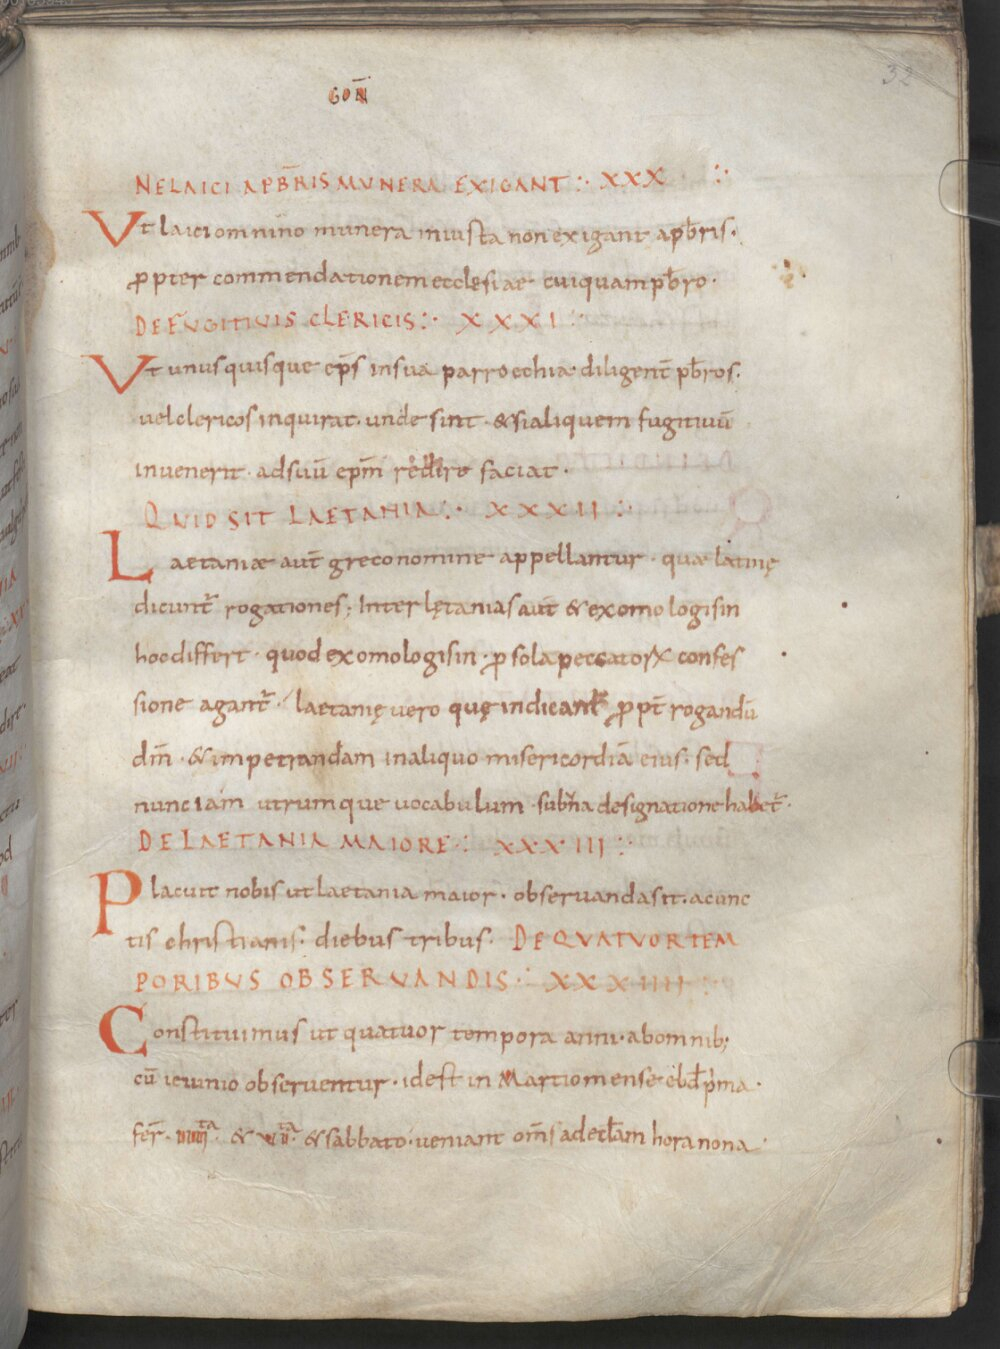 32
CON̄
NE LAICI A PB̄RIS MUNERA EXIGANT ∴ XXX ∴
Ut laici omnino munera iniusta non exigant a pb̄ris.
ꝓpter commendationem ecclesiae cuiquam pb̄ro.
DE FUGITIUIS CLERICIS ∴ XXXI ∴
Ut unusquisque ep̄s in sua parrocchia diligent̄ pb̄ros.
uel clericos inquirat. unde sint. & si aliquem fugitiuū
inuenerit. ad suū ep̄m redire faciat.
QUID SIT LAETANIA ∴ XXXII ∴
Laetaniæ aut̄ greco nomine appellantur. quæ latinę
dicunt᷑ rogationes; Inter lętanias aut̄ & exomologisin
hoc differt. quod exomologisin. ꝓ sola peccatoꝝ confes
sione agant᷑. laetanię uero quę indicant᷑ ꝓpt̄ rogandū
dm̄. & impetrandam in aliquo misericordiā eius. sed
nunc iam utrumque uocabulum. sub una designatione habet᷑.
DE LAETANIA MAIORE ∴ XXXIII ∴
Placuit nobis ut laetania maior. obseruanda sit. a cunc
tis christianis. diebus tribus. DE QUATUOR TEM
PORIBUS OBSERUANDIS ∴ XXXIIII ∴
Constituimus ut quatuor tempora anni. ab omnib;
cū ieiunio obseruentur. id est in Martio mense ebd̄ prima.
fer̄. IIII.ᵗᵃ & VI.ᵗᵃ & sabbato. ueniant om̄s ad eccl̄am hora nona